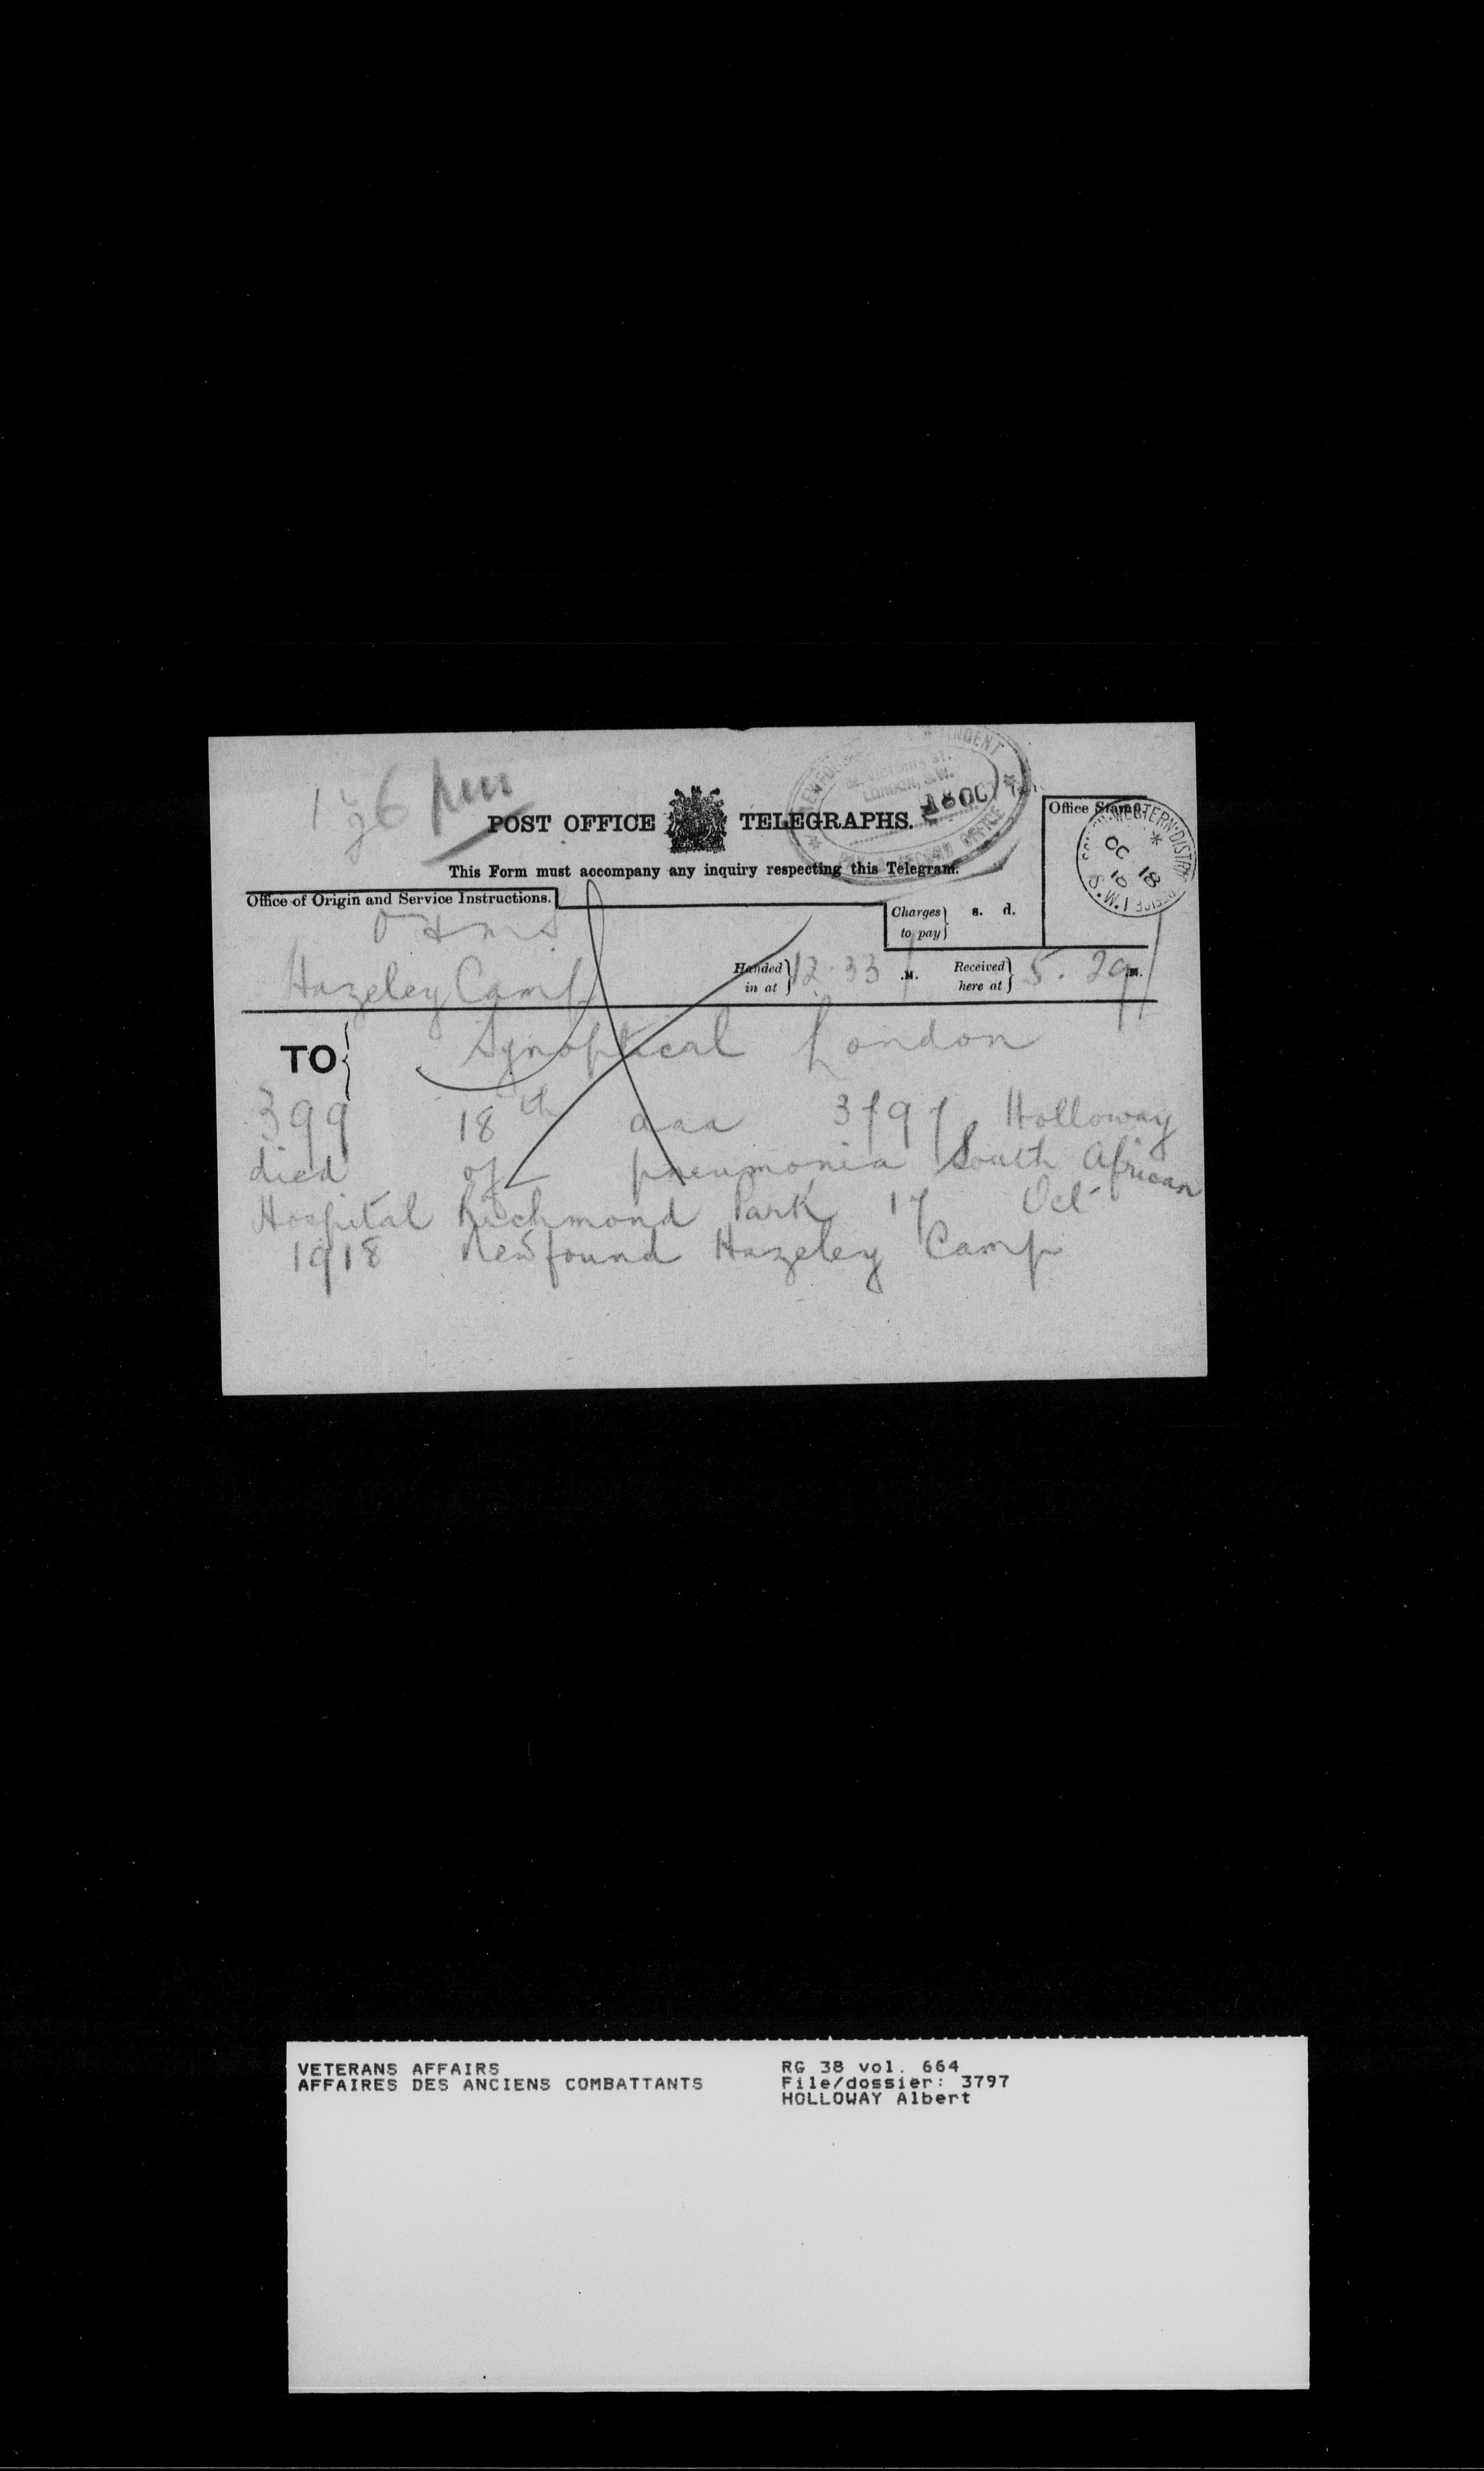 6 pm
NEWFOUN TINGENT
VICTORIA ST.
LONDON, S.W.
18 OCT
PAY & RECORD OFFICE
POST OFFICE TELEGRAPHS.
This Form must accompany any inquiry respecting this Telegram.
Office Stamp.
WESTERN DISTRICT OFFICE S.W.1
OC 18
18
Office of Origin and Service Instructions.
OHMS
Charges to pay } s. d.
Hazeley Camp
Handed in at } 12.33 .M. Received here at } 5.29 .M.
TO { Synoptical London
399 18th aaa 3797 Holloway
died of pneumonia South African
Hospital Richmond Park 17 Oct
1918 Newfound Hazeley Camp
VETERANS AFFAIRS RG 38 vol. 664
AFFAIRES DES ANCIENS COMBATTANTS File/dossier: 3797
HOLLOWAY Albert